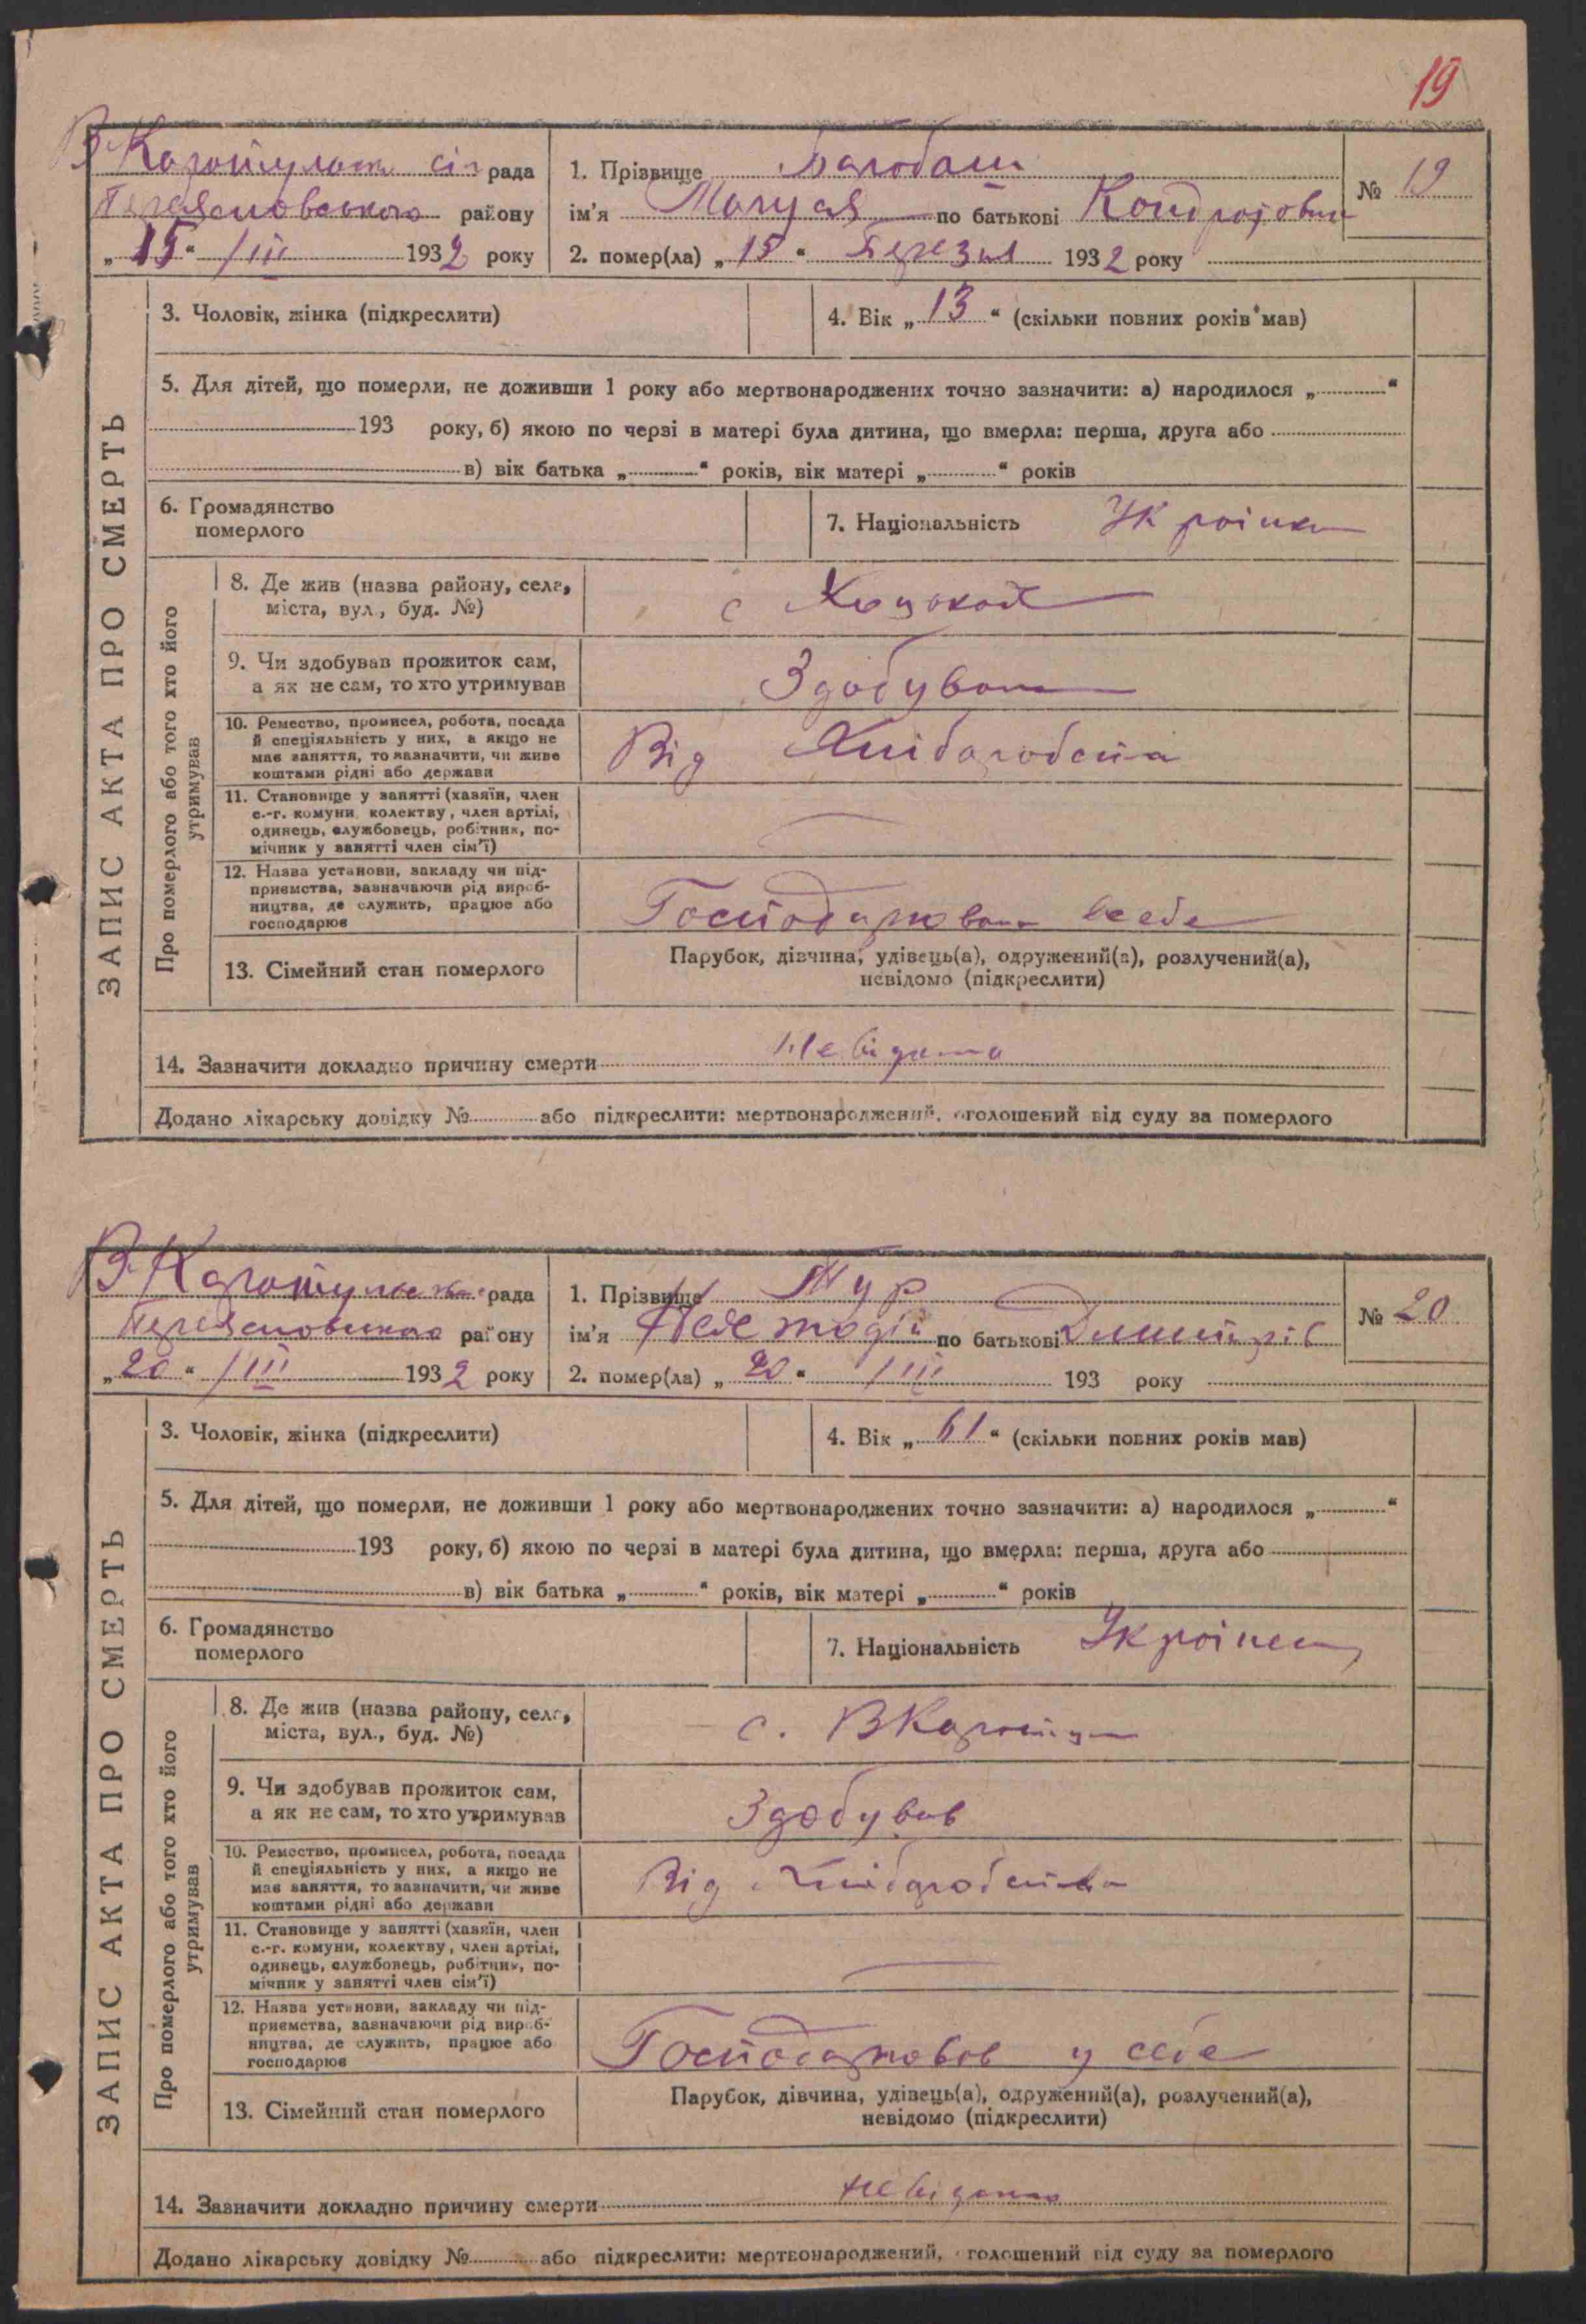 19
В Каратульська сіл рада
Переяславського району
„15“ /III 1932 року
1. Прізвище
ім'я Маруся по батькові Кондратовни
№ 19
2. помер(ла) „15“ Березня 1932 року
ЗАПИС АКТА ПРО СМЕРТЬ
3. Чоловік, жінка (підкреслити)
4. Вік „13“ (скільки повних років мав)
5. Для дітей, що померли, не доживши 1 року або мертвонароджених точно зазначити: а) народилося „ “
193 року, б) якою по черзі в матері була дитина, що вмерла: перша, друга або
в) вік батька „ “ років, вік матері „ “ років
6. Громадянство
померлого
7. Національність Українка
Про померлого або того хто його
утримував
8. Де жив (назва району, села,
міста, вул., буд. №)
с Хоцьках
9. Чи здобував прожиток сам,
а як не сам, то хто утримував
Здобувала
10. Ремество, промисел, робота, посада
й спеціяльність у них, а якщо не
має заняття, то зазначити, чи живе
коштами рідні або держави
Від Хліборобства
11. Становище у занятті (хазяїн, член
с.-г. комуни, колектву, член артілі,
одинець, службовець, робітник, по-
мічник у занятті член сім'ї)
12. Назва установи, закладу чи під-
приємства, зазначаючи рід вироб-
ництва, де служить, працює або
господарює
Господарювала в себе
13. Сімейний стан померлого
Парубок, дівчина, удівець(а), одружений(а), розлучений(а),
невідомо (підкреслити)
14. Зазначити докладно причину смерти Невідома
Додано лікарську довідку № або підкреслити: мертвонароджений, оголошений від суду за померлого
В Каратульська рада
Переяславського району
„20“ /III 1932 року
1. Прізвище Тур
ім'я по батькові Дмитрів
№ 20
2. помер(ла) „20“ /III 193 року
ЗАПИС АКТА ПРО СМЕРТЬ
3. Чоловік, жінка (підкреслити)
4. Вік „61“ (скільки повних років мав)
5. Для дітей, що померли, не доживши 1 року або мертвонароджених точно зазначити: а) народилося „ “
193 року, б) якою по черзі в матері була дитина, що вмерла: перша, друга або
в) вік батька „ “ років, вік матері „ “ років
6. Громадянство
померлого
7. Національність Українець
Про померлого або того хто його
утримував
8. Де жив (назва району, села,
міста, вул., буд. №)
с. В Каратул
9. Чи здобував прожиток сам,
а як не сам, то хто утримував
Здобував
10. Ремество, промисел, робота, посада
й спеціяльність у них, а якщо не
має заняття, то зазначити, чи живе
коштами рідні або держави
Від Хліборобства
11. Становище у занятті (хазяїн, член
с.-г. комуни, колектву, член артілі,
одинець, службовець, робітник, по-
мічник у занятті член сім'ї)
12. Назва установи, закладу чи під-
приємства, зазначаючи рід вироб-
ництва, де служить, працює або
господарює
Господарював у себе
13. Сімейний стан померлого
Парубок, дівчина, удівець(а), одружений(а), розлучений(а),
невідомо (підкреслити)
14. Зазначити докладно причину смерти невідома
Додано лікарську довідку № або підкреслити: мертвонароджений, оголошений від суду за померлого